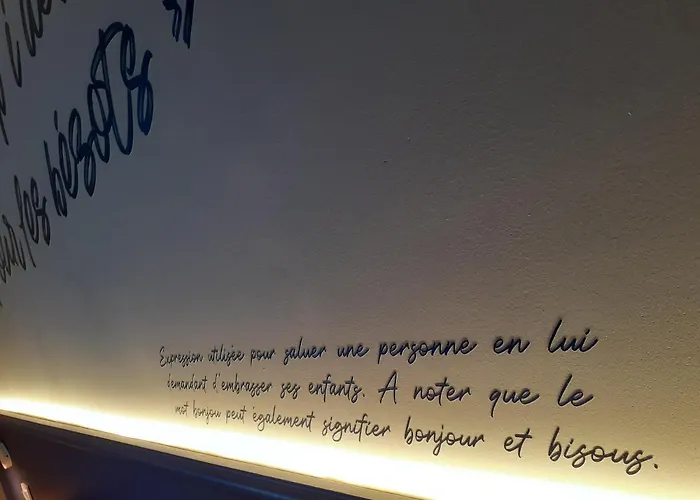 les bézots "
Expression utilisée pour saluer une personne en lui
demandant d'embrasser ses enfants. A noter que le
mot bonjou peut également signifier bonjour et bisous.